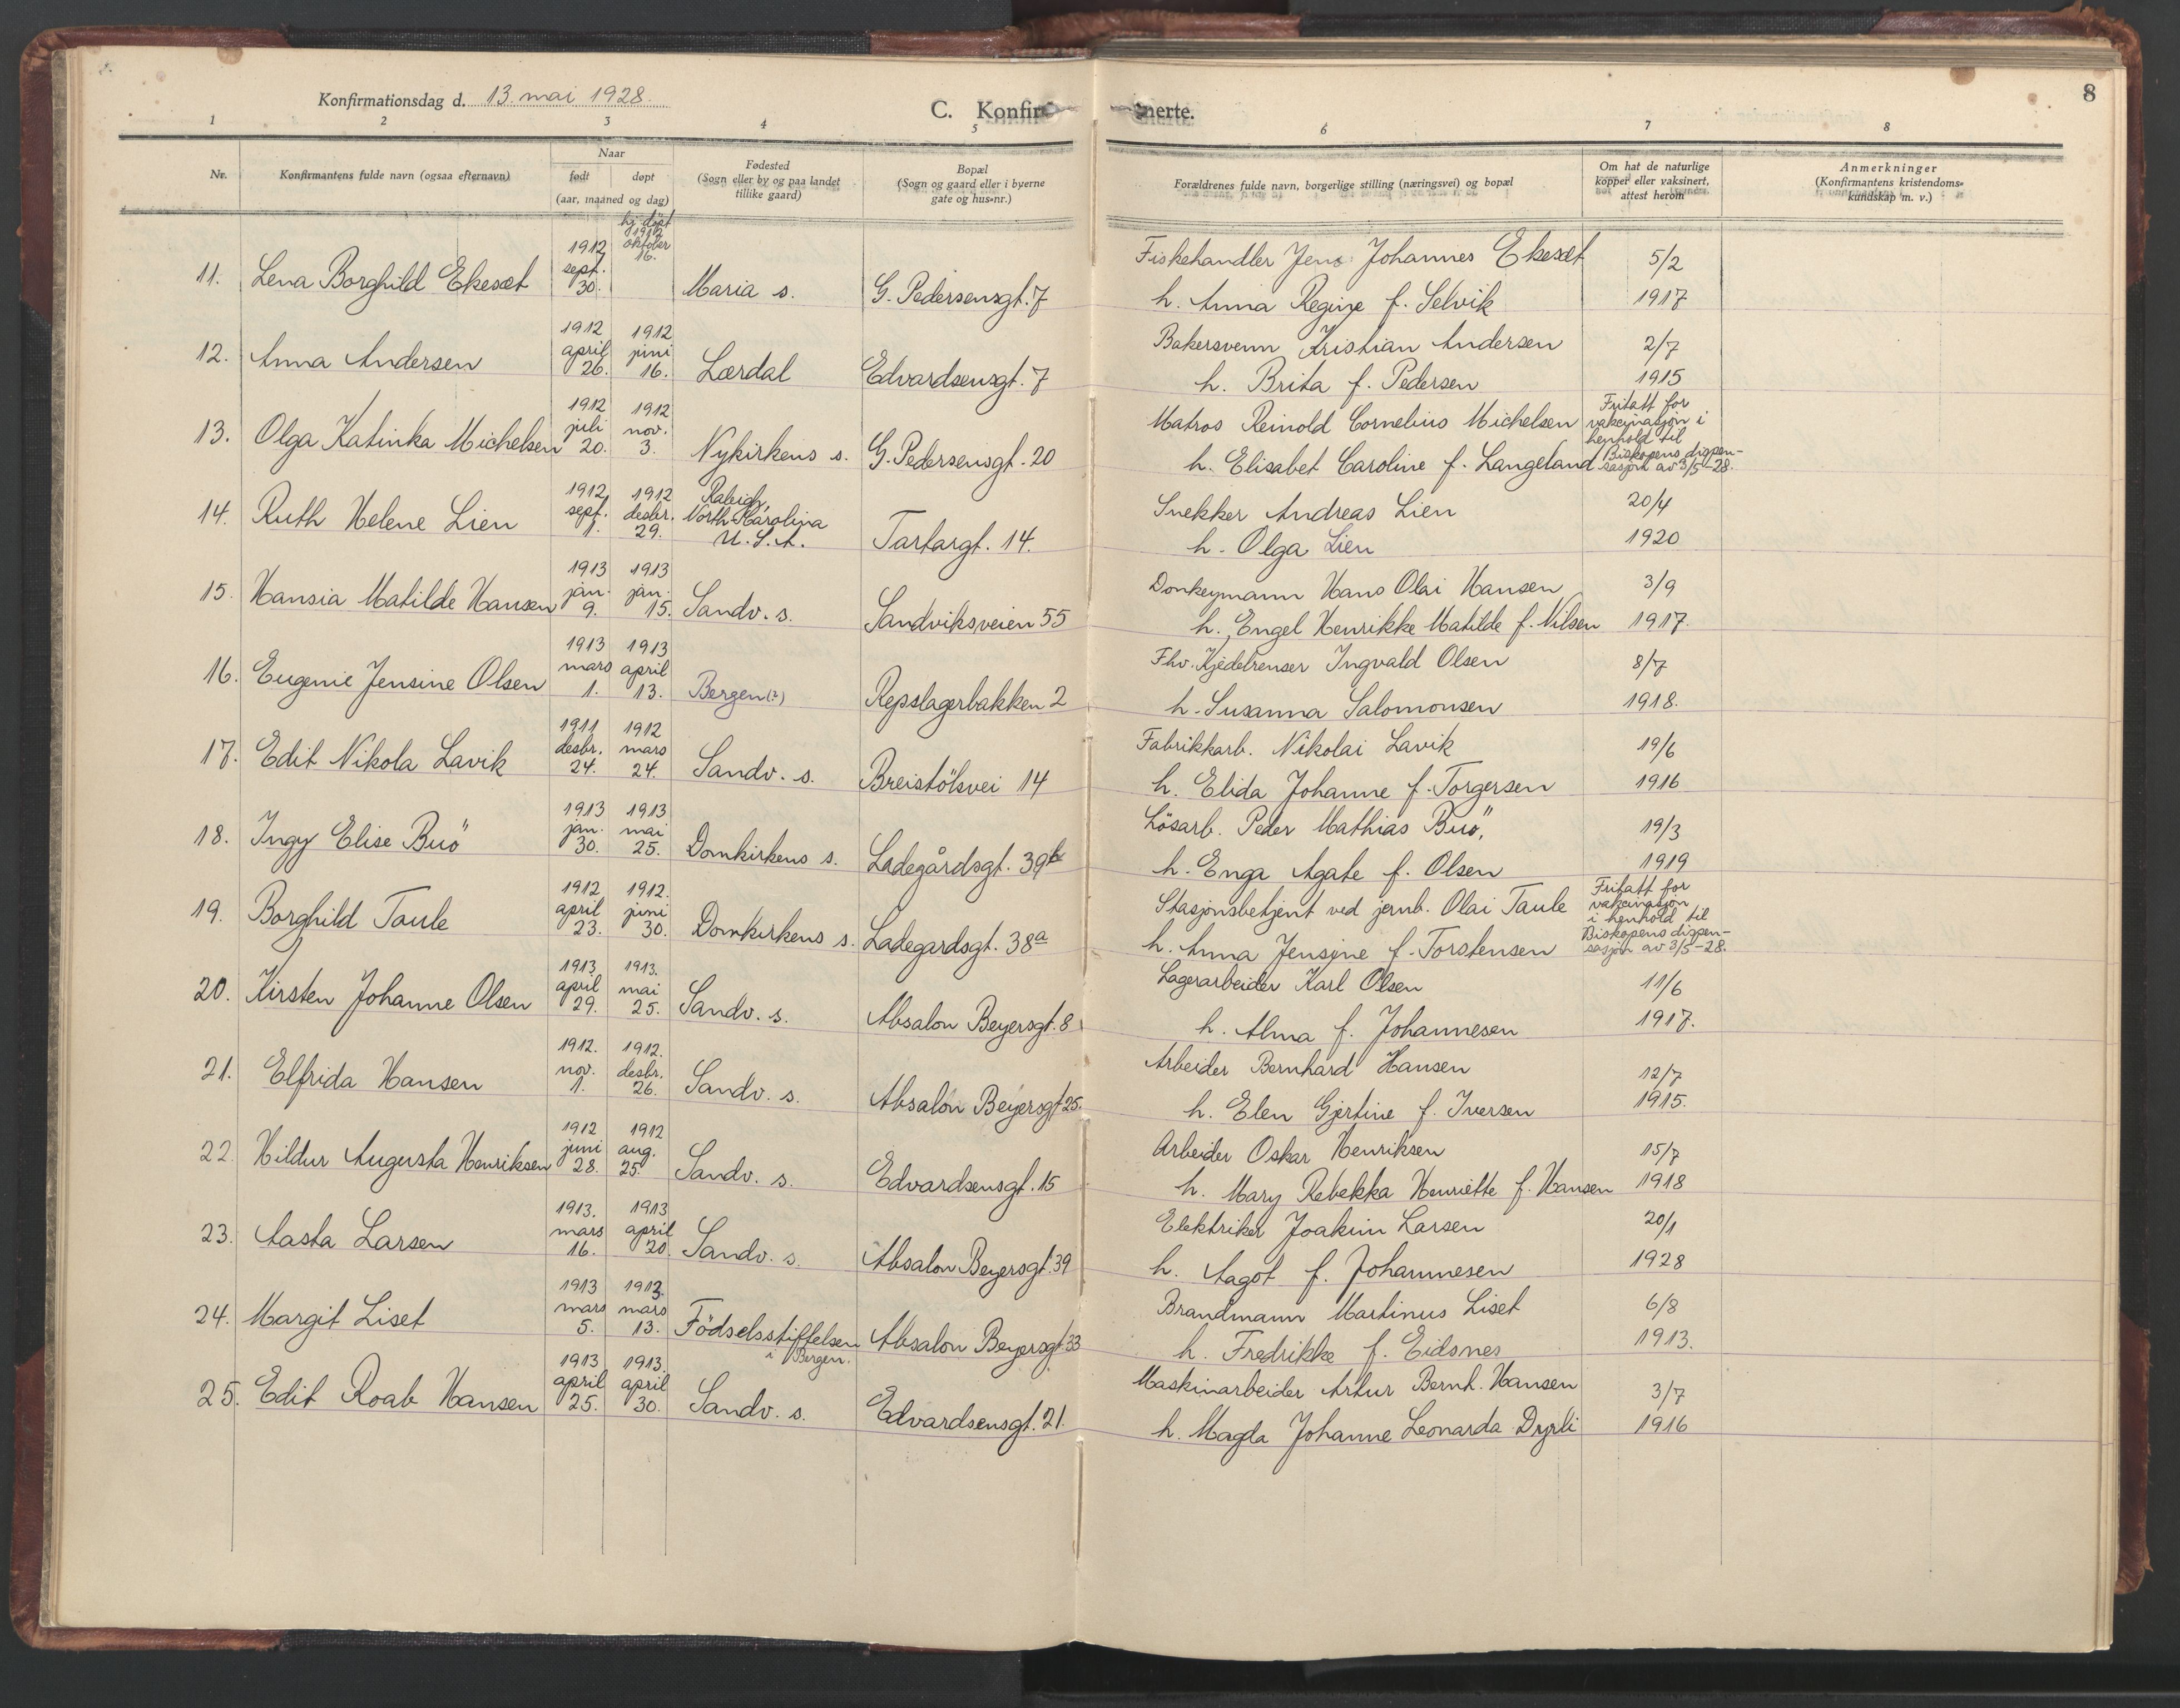 Konfirmationsdag d. 13. mai 1928.
C. Konfir
nerte.
8
1 2 3 4 5 6 7 8
Nr.
Konfirmantens fulde navn (ogsaa efternavn)
Naar
født
døpt
(aar, maaned og dag)
Fødested
(Sogn eller by og paa landet
tillike gaard)
Bopæl
(Sogn og gaard eller i byerne
gate og hus-nr.)
Forældrenes fulde navn, borgerlige stilling (næringsvei) og bopæl
Om hat de naturlige
kopper eller vaksinert,
attest herom
Anmerkninger
(Konfirmantens kristendoms-
kundskap m. v.)
11. Lena Borghild Ekesæt
1912 sept. 30.
hj. døpt 1912 oktober 16.
Maria s.
G. Pedersensgt. 7
Fiskehandler Jens Johannes Ekesæt
h. Anna Regine f. Selvik
5/2
1917
12. Anna Andersen
1912 april 26.
1912 juni 16.
Lærdal
Edvardsensgt. 7
Bakersvenn Kristian Andersen
h. Brita f. Pedersen
2/7
1915
13. Olga Katinka Michelsen
1912 juli 20.
1912 nov. 3.
Nykirkens s.
G. Pedersensgt. 20
Matros Reinold Cornelius Michelsen
h. Elisabet Caroline f. Langeland
Fritatt for
vakcinasjon i
henhold til
Biskopens dispen-
sasjon av 3/5-28.
14. Ruth Helene Lien
1912 sept. 1.
1912 desbr. 29.
Raleigh
North-Carolina
U.S.A.
Tartargt. 14.
Snekker Andreas Lien
h. Olga Lien
20/4
1920
15. Hansia Matilde Hansen
1913 jan. 9.
1913 jan. 15.
Sandv. s.
Sandviksveien 55
Donkeymann Hans Olai Hansen
h. Engel Henrikke Matilde f. Nilsen
3/9
1917.
16. Eugenie Jensine Olsen
1913 mars 1.
1913 april 13.
Bergen (?)
Repslagerbakken 2
Fhv. Kjedelrenser Ingvald Olsen
h. Susanna Salomonsen
8/7
1918.
17. Edit Nikola Lavik
1911 desbr. 24.
1912 mars 24.
Sandv. s.
Breistölsvei 14
Fabrikkarb. Nikolai Lavik
h. Elida Johanne f. Torgersen
19/6
1916
18. Ingy Elise Buö
1913 jan. 30.
1913 mai 25.
Domkirkens s.
Ladegårdsgt. 39b
Lösarb. Peder Mathias Buö,
h. Enga Agate f. Olsen
19/3
1919
19. Borghild Taule
1912 april 23.
1912. juni 30.
Domkirkens s.
Ladegardsgt. 38a
Stasjonsbetjent ved jernb. Olai Taule
h. Anna Jensine f. Torstensen
Fritatt for
vakcinasjon
i henhold til
Biskopens dispen-
sasjon av 3/5-28.
20. Kirsten Johanne Olsen
1913 april 29.
1913. mai 25.
Sandv. s.
Absalon Beyersgt. 8
Lagerarbeider Karl Olsen
h. Alma f. Johannesen
11/6
1917.
21. Elfrida Hansen
1912. nov. 1.
1912. desbr. 26.
Sandv. s.
Absalon Beyersgt 25.
Arbeider Bernhard Hansen
h. Elen Gjertine f. Iversen
12/7
1915.
22. Hildur Augusta Henriksen
1912 juni 28.
1912 aug. 25.
Sandv. s.
Edvardsensgt. 15
Arbeider Oskar Henriksen
h. Mary Rebekka Henriette f. Hansen
15/7
1918
23. Aasta Larsen
1913. mars 16.
1913 april 20.
Sandv. s.
Absalon Beyersgt. 39
Elektriker Joakim Larsen
h. Aagot f. Johannesen
20/1
1928
24. Margit Liset
1913 mars 5.
1913. mars 13.
Födselsstiftelsen
i Bergen.
Absalon Beyersgt. 33
Brandmann Martinus Liset
h. Fredrikke f. Eidsnes
6/8
1913.
25. Edit Roab Hansen
1913 april 25.
1913. april 30.
Sandv. s.
Edvardsensgt. 21.
Maskinarbeider Artur Bernh. Hansen
h. Magda Johanne Leonarda Dyrli
3/7
1916